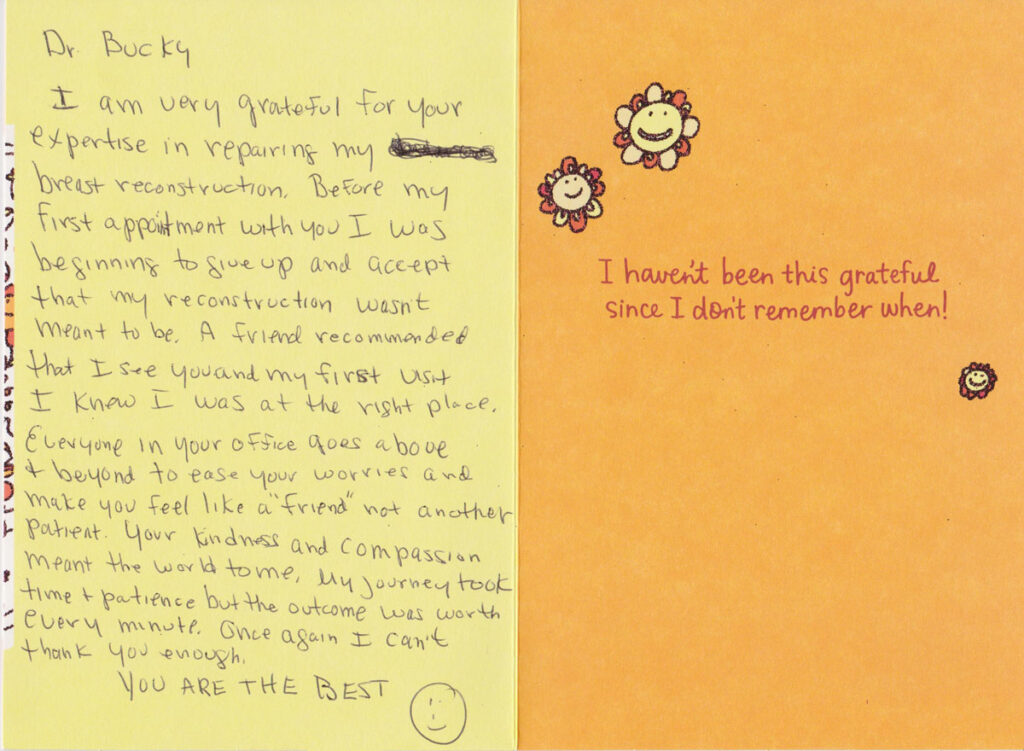 Dr. Bucky
I am very grateful for your
expertise in repairing my
breast reconstruction. Before my
first appointment with you I was
beginning to give up and accept
that my reconstruction wasn't
meant to be. A friend recommended
that I see you and my first visit
I knew I was at the right place.
Everyone in your office goes above
+ beyond to ease your worries and
make you feel like a "friend" not another
patient. Your kindness and compassion
meant the world to me. My journey took
time + patience but the outcome was worth
every minute. Once again I can't
thank you enough.
YOU ARE THE BEST
I haven't been this grateful
since I don't remember when!